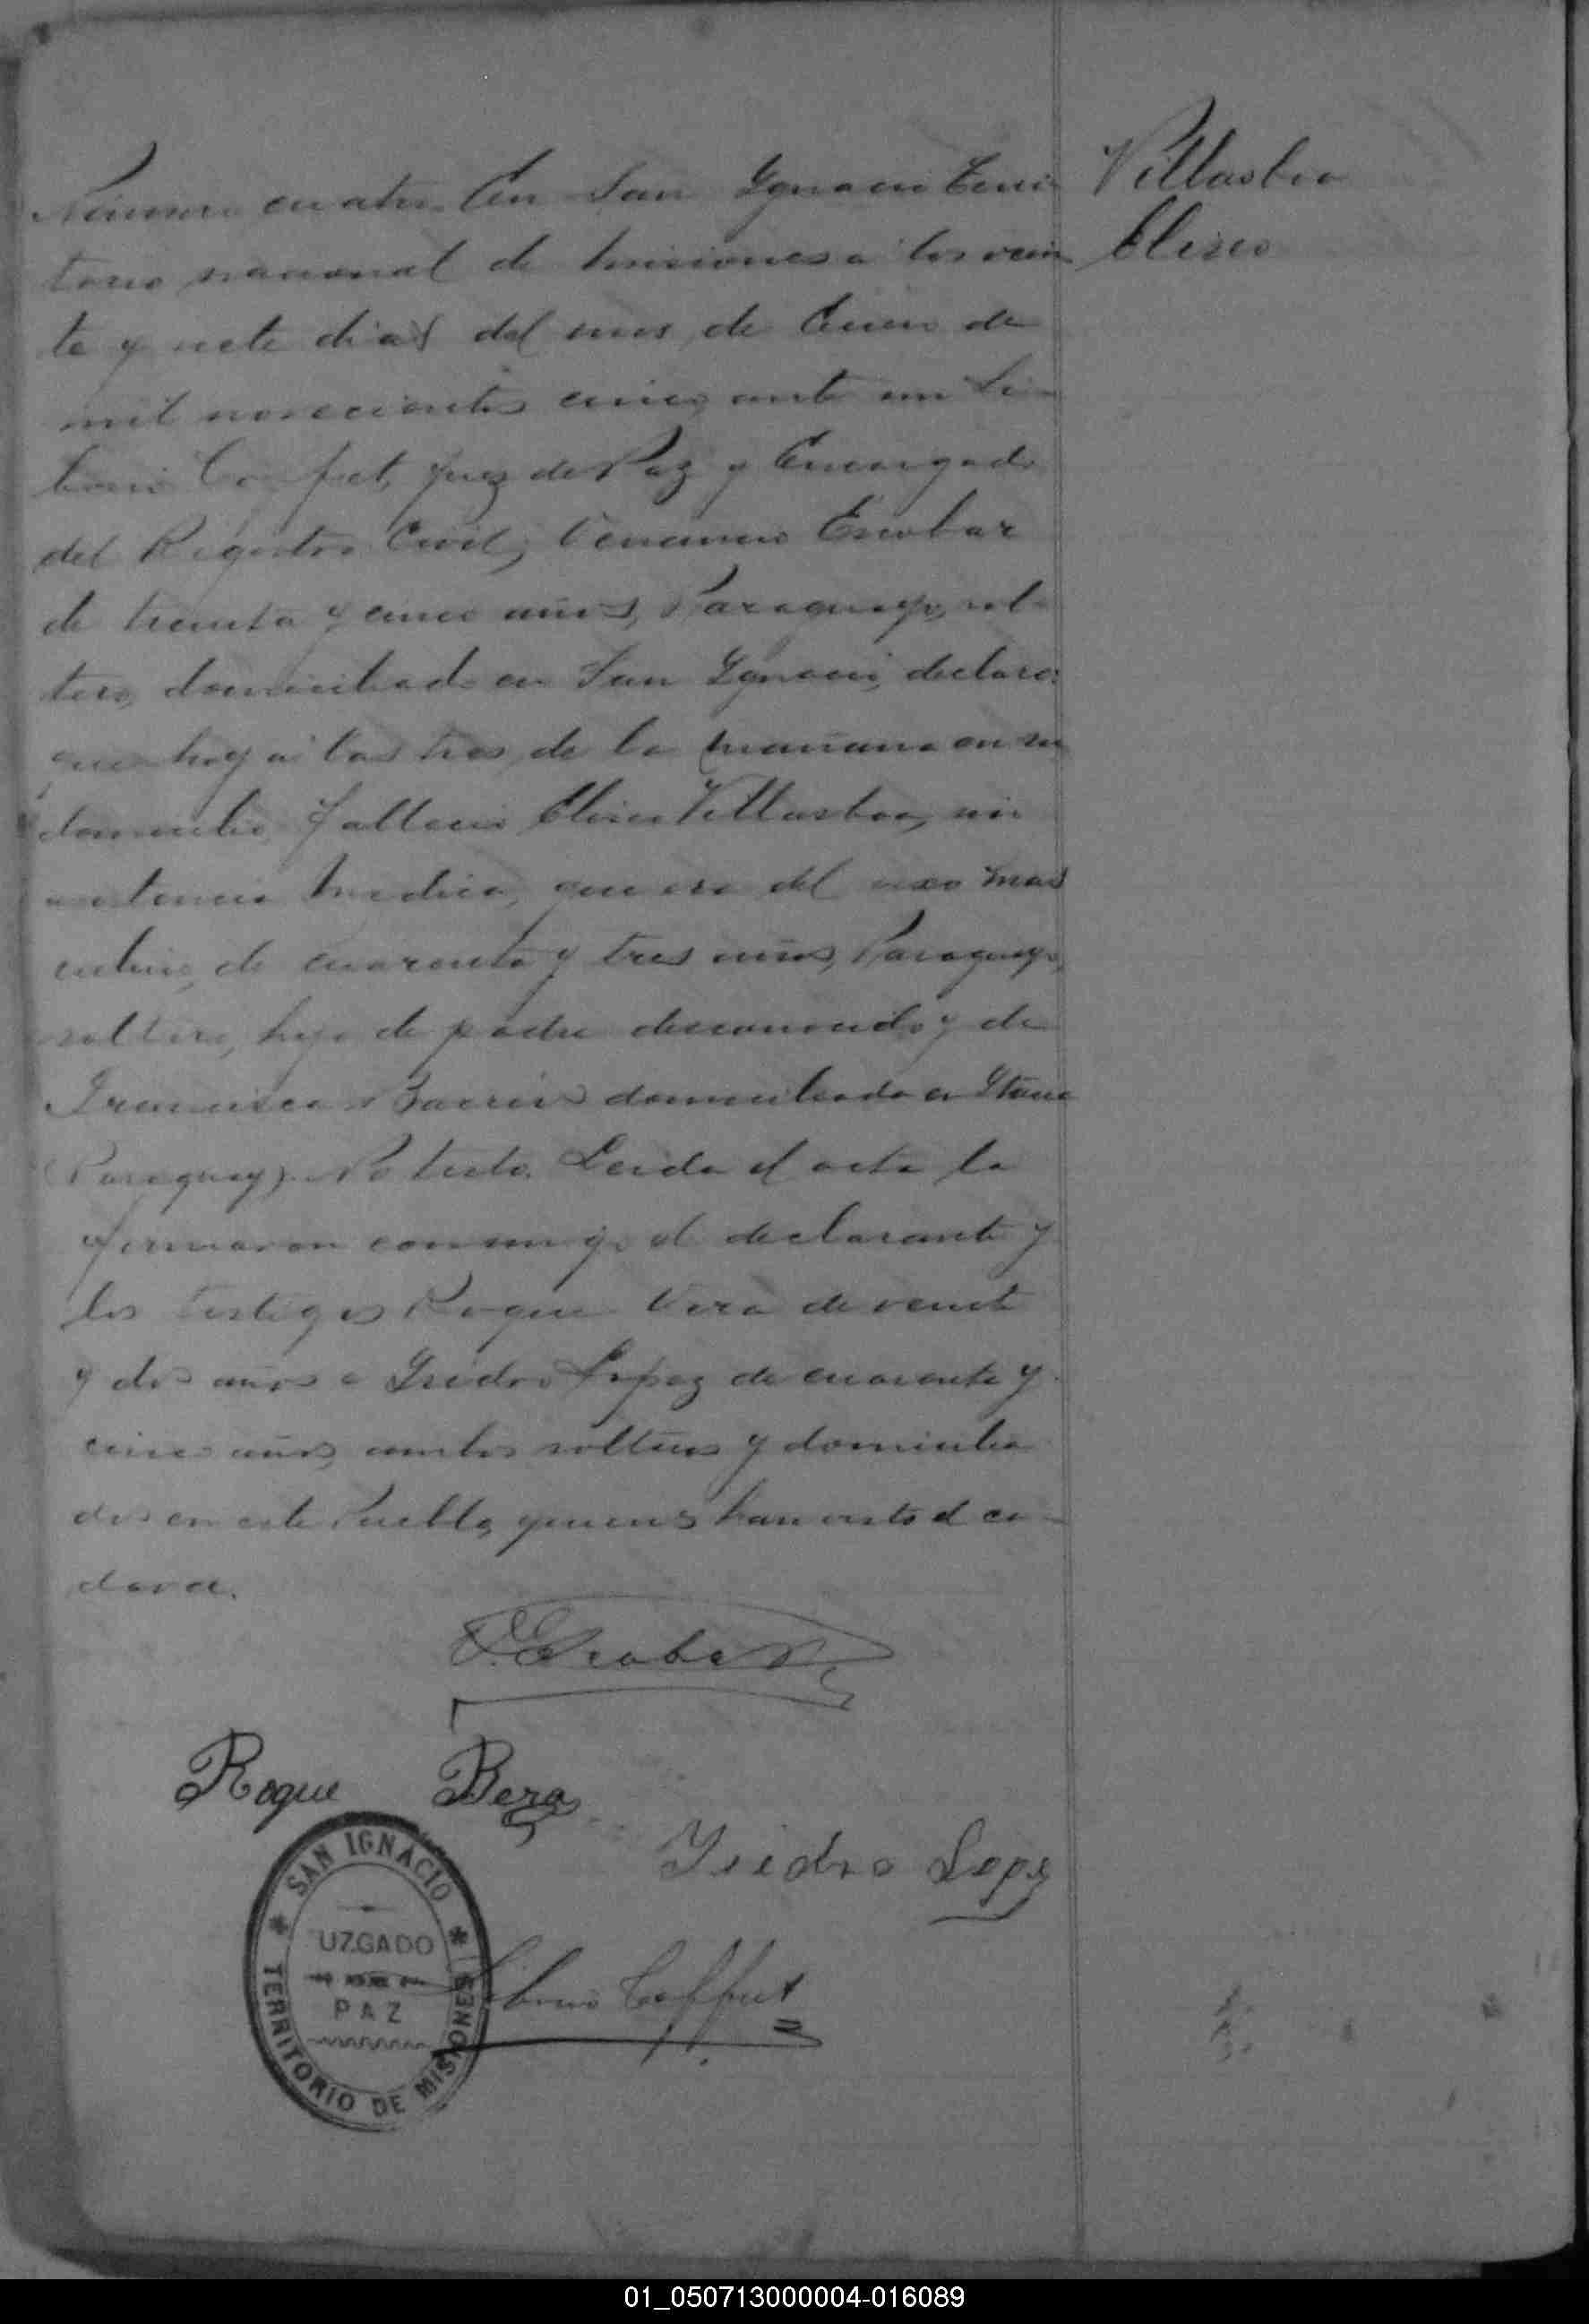 Villasboa
Eliseo
Número cuatro. En San Ygnacio Terri
torio nacional de Misiones a los vein
te y siete dias del mes de Enero de
mil novecientos cinco, ante mi Li-
borio Coffet, Juez de Paz y Encargado
del Registro Civil, Venancio Escobar
de treinta y cinco años, Paraguayo, sol-
tero, domiciliado en San Ygnacio, declaro:
que hoy a las tres de la mañana en su
domicilio fallecio Eliseo Villasboa, sin
asistencia medica, que era del sexo mas
culino, de cuarenta y tres años, Paraguayo,
soltero, hijo de padre desconocido y de
Francisca domiciliada en
(Paraguay). No testo. Leida el acta la
firmaron conmigo el declarante y
los testigos Roque Vera de veinte
y dos años e Isidro Lopez de cuarenta y
cinco años, ambos solteros y domicilia
dos en este Pueblo, quienes han visto el ca-
daver.
V. Escobar
Roque Bera
Isidro Lopez
Liborio Coffet
SAN IGNACIO
UZGADO
PAZ
TERRITORIO DE MISIONES
01_050713000004-016089